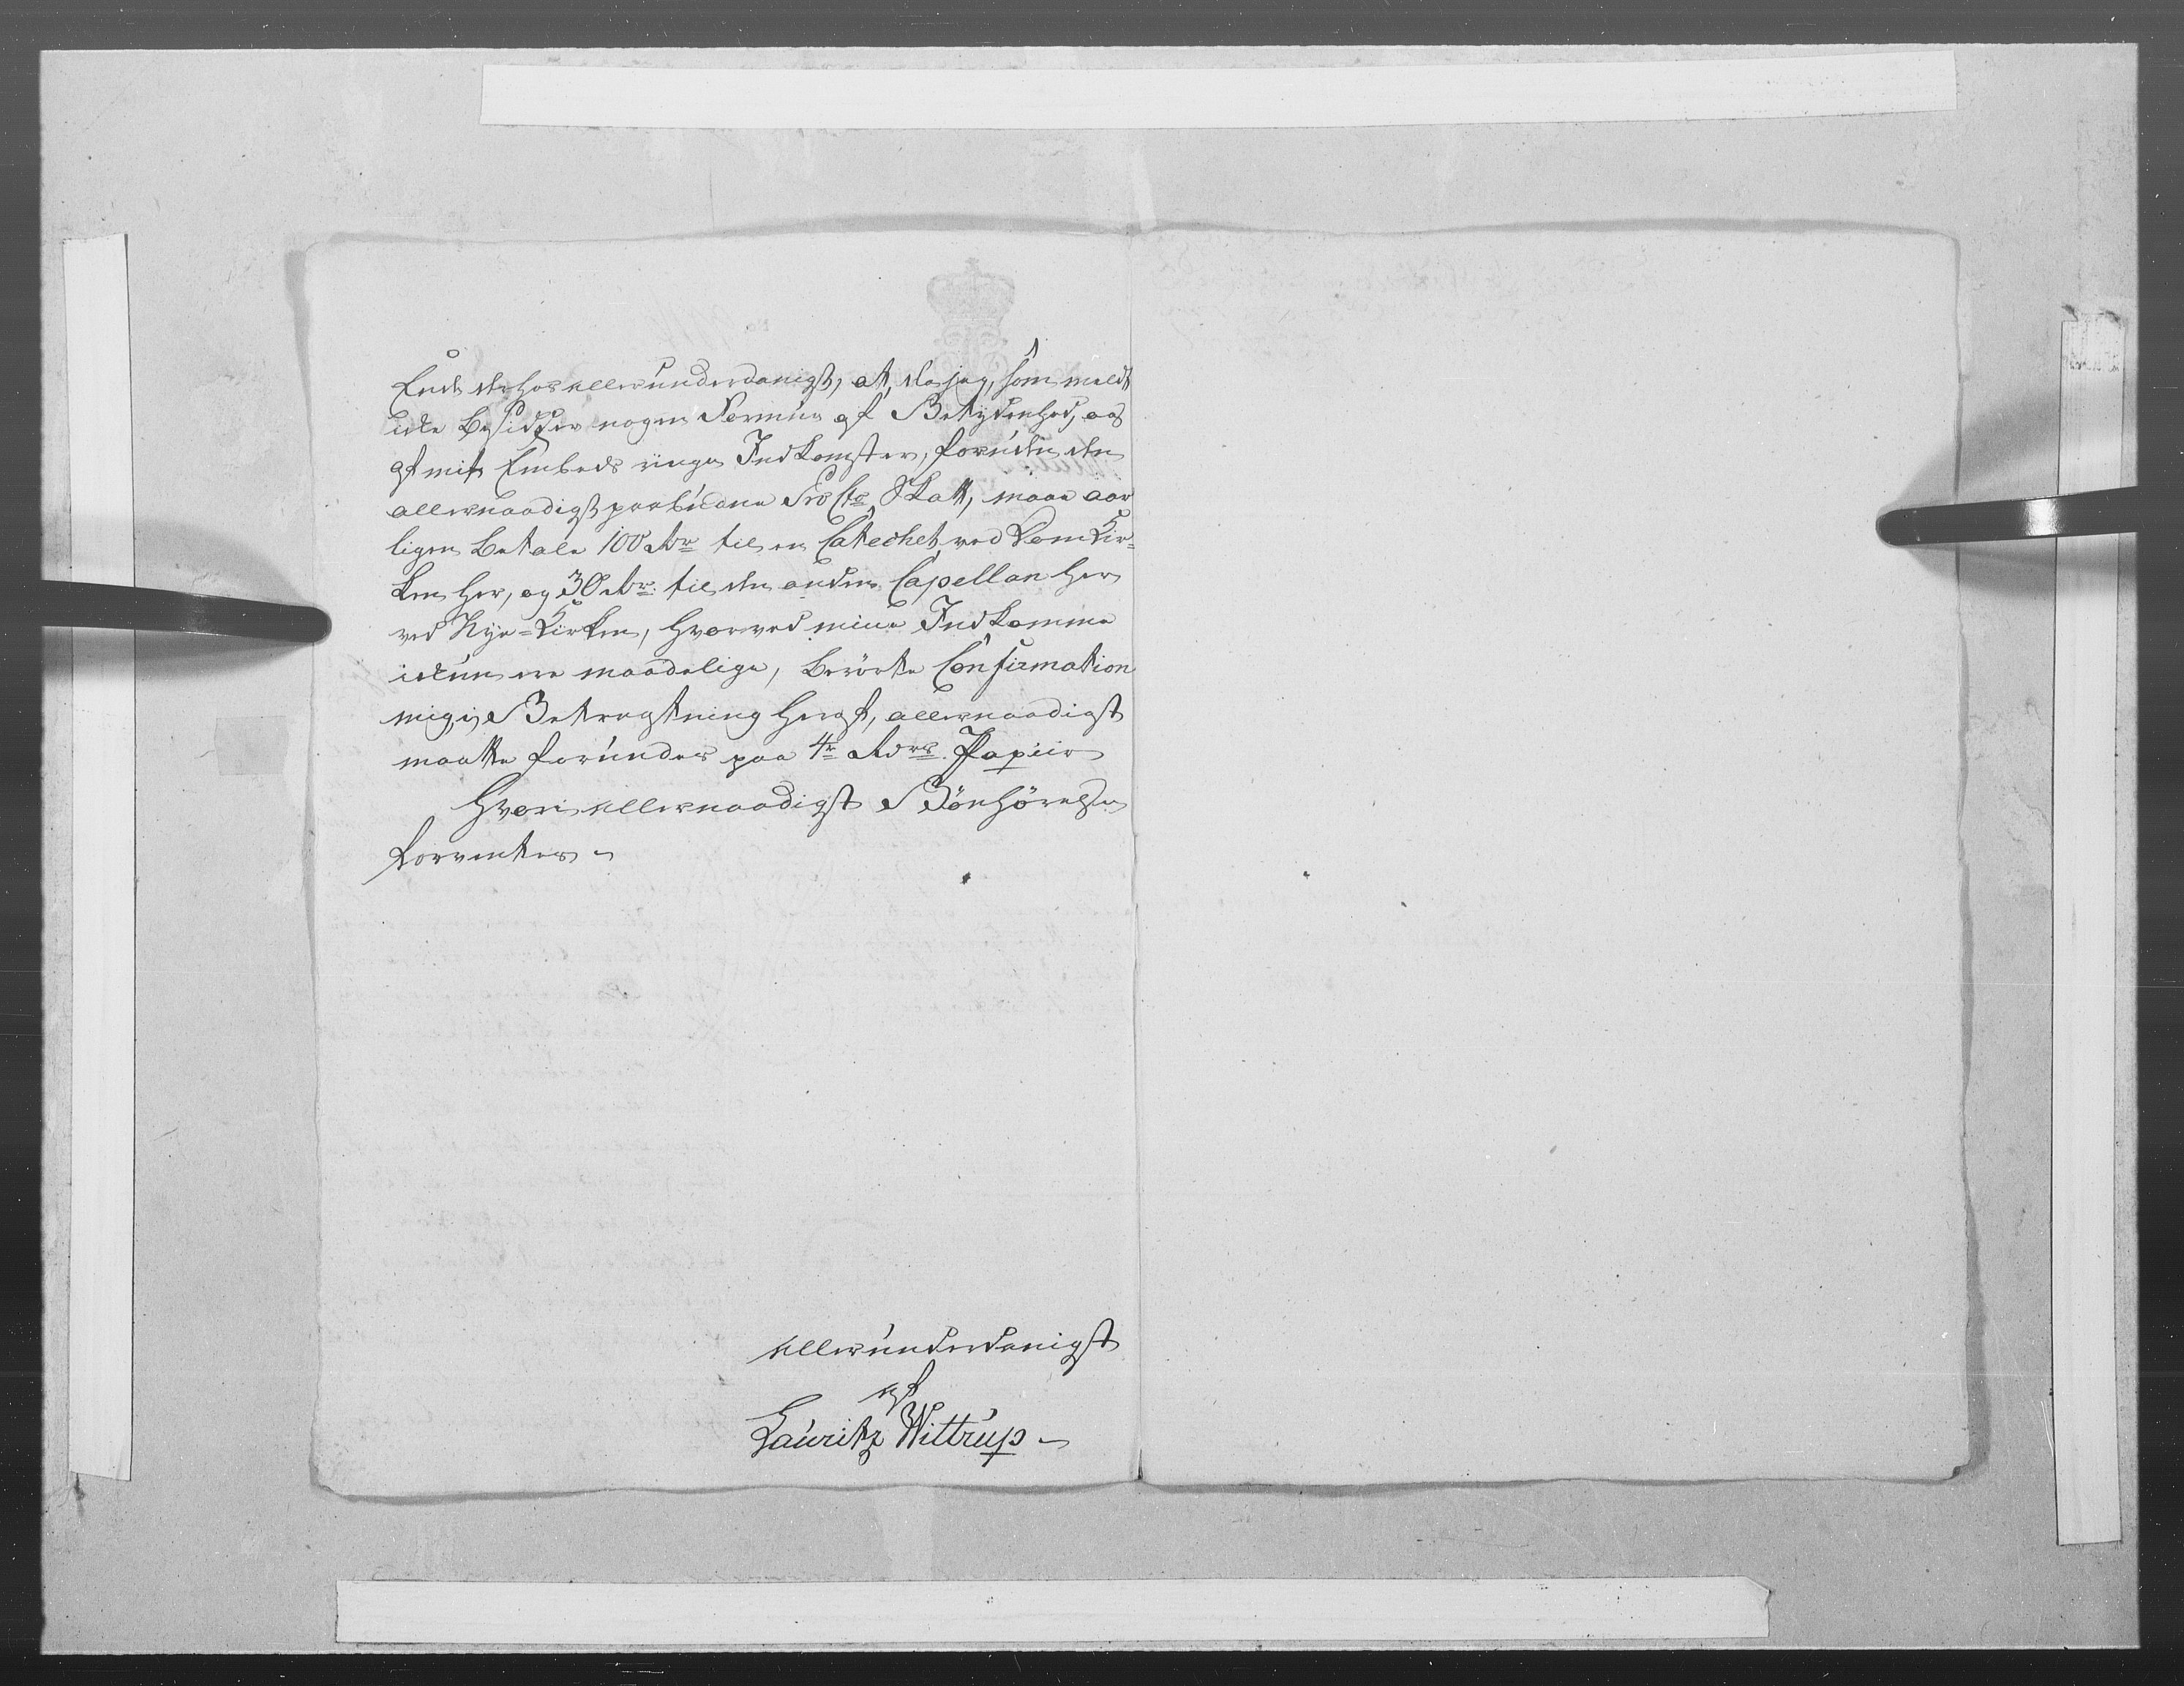 derhos allerunderdanigst, at, da jeg, som meldt
icke besidder nogen Formue af Betydenhed, og
af mit Embeds ringe Indkomster, foruden den
allernaadigst paabudene Pro Cto Skatt, maae aar
ligen betale 100 rdr til en Catechet ved Domkir=
ken her, og 30 rdr: til den anden Capellan her
ved Nye=Kirken, hvorved mine Indkomme
ickun ere maadelige, berörte Confirmation
mig, i Betragtning heraf, allernaadigst
maatte forundes paa 4r rdrs. Papiir
Hvori allernaadigst Bönhörelse
forventes
allerunderdanigst
af
Lauritz Wittrup